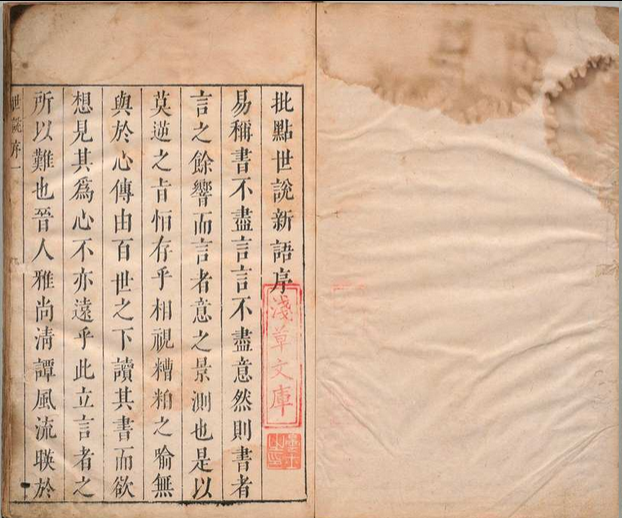 批點世說新語序
淺草文庫
易稱書不盡言言不盡意然則書者
言之餘響而言者意之景測也是以
莫逆之旨恒存乎相視糟粕之喻無
與於心傳由百世之下讀其書而欲
想見其爲心不亦遠乎此立言者之
所以難也晉人雅尚清譚風流映於
世說序一